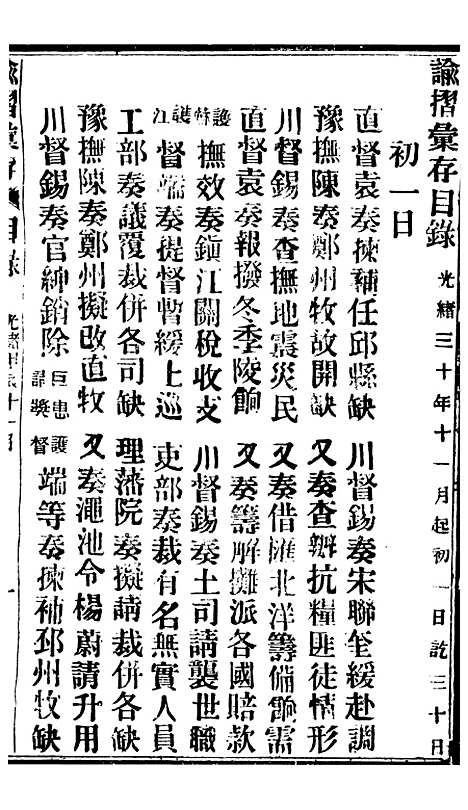 諭摺彙存目錄 光緒三十年十一月起初一日訖三十日
初一日
直督袁奏揀補任邱縣缺 川督錫奏宋聯奎緩赴調
豫撫陳奏鄭州牧故開缺 又奏查辦抗糧匪徒情形
川督錫奏查撫地震災民 又奏借匯北洋籌備餉需
直督袁奏報撥冬季陵餉 又奏籌解攤派各國賠款
護特撫效奏鎮江關稅收支 川督錫奏土司請襲世職
護江督端奏提督暫緩上巡 吏部奏裁有名無實人員
工部奏議覆裁併各司缺 理藩院奏擬請裁併各缺
豫撫陳奏鄭州擬改直牧 又奏澠池令楊蔚請升用
川督錫奏官紳銷除巨患請獎 護督端等奏揀補邳州牧缺
諭摺彙存 目錄 光緒 十一月 一